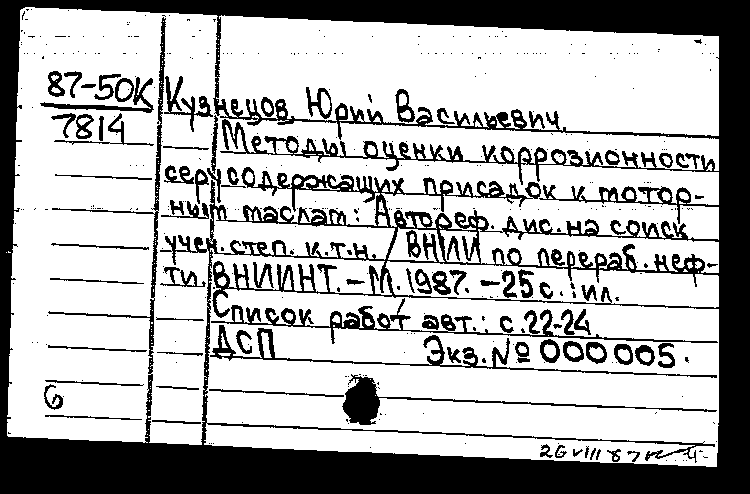 87-50К
7814
Кузнецов, Юрий Васильевич.
Методы оценки коррозионности
серусодержащих присадок к мотор-
ным маслам: Автореф. дис. на соиск.
учен. степ. к.т.н. / ВНИИ по перераб. неф-
ти. ВНИИНТ. – М. 1987. – 25 с.: ил.
Список работ авт.: с. 22-24.
ДСП Экз. № 000005.
6
26 VIII 87